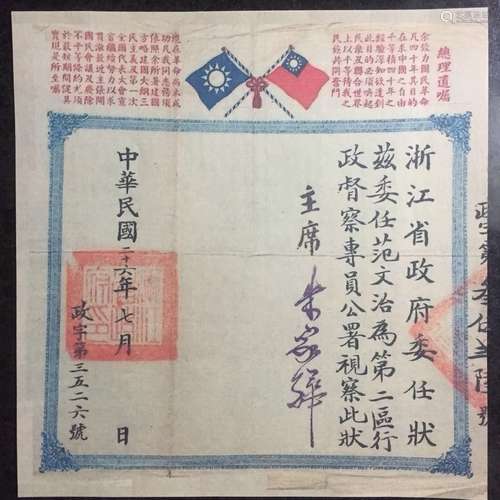 總理遺囑
余致力國民革命
凡四十年其目的
在求中國之自由
平等積四十年之
經驗深知欲達到
此目的必須喚起
民眾及聯合世界
上以平等待我之
民族共同奮鬥
現在革命尚未成
功凡我同志務須
依照余所著建國
方略建國大綱三
民主義及第一次
全國代表大會宣
言繼續努力以求
貫澈最近主張開
國民會議及廢除
不平等條約尤須
於最短期間促其
實現是所至囑
浙江省政府委任狀
茲委任范文治為第二區行
政督察專員公署視察此狀
主席 朱家驊
中華民國二十六年七月 日
政字第三五二六號